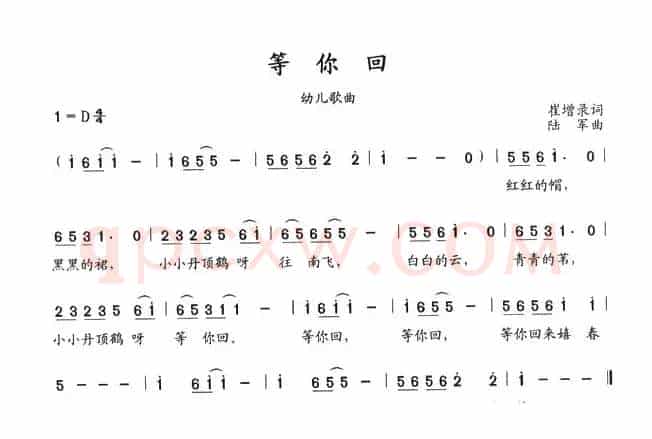 等你回
幼儿歌曲
1=D 4/4
崔增录词
陆 军曲
( i 6 i i - | i 6 5 5 - | 5 6 5 6 2 2 | i - - 0 ) | 5 5 6 i. 0 |
红红的帽,
6 5 3 1. 0 | 2 3 2 3 5 6 i | 5 6 5 5 - | 5 5 6 i. 0 | 6 5 3 1. 0 |
黑黑的裙, 小小丹顶鹤 呀 往 南飞, 白白的云, 青青的苇,
2 3 2 3 5 6 i | 6 5 3 1 - | 5 6 i i - | i 6 5 5 - | 5 6 5 6 i i |
小小丹顶鹤 呀 等 你回, 等你回, 等你回, 等你回来嬉 春
5 - - - | i 6 i i - | i 6 5 5 - | 5 6 5 6 2 2 | i - - - ‖
qpcxw.com